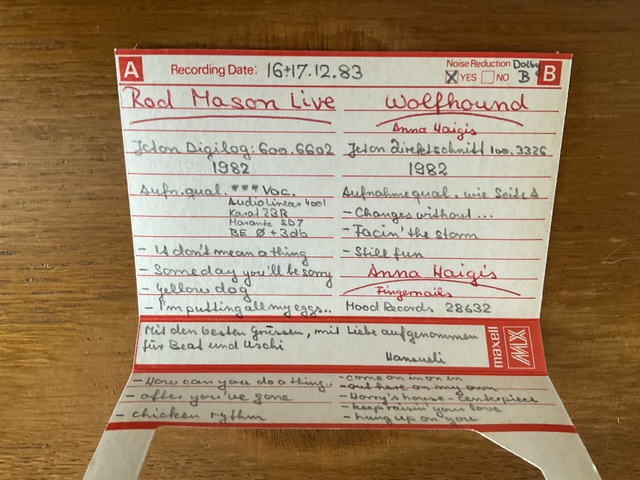 A Recording Date: 16+17.12.83 Noise Reduction Dolby B
YES NO B
Rod Mason Live
Jeton Digilog: 600.6602
1982
Aufn.qual. *** Voc.
Audio Linear 4001
Karat 23R
Marantz SD7
BE Ø +3db
- It don't mean a thing
- Someday you'll be sorry
- Yellow dog
- I'm putting all my eggs..
Wolfhound
Anna Haigis
Jeton direktschnitt 100.3326
1982
Aufnahmequal. wie Seite A
- Changes without...
- Facin' the storm
- Still fun
Anna Haigis
Fingernails
Mood Records 28632
Mit den besten Grüssen, mit Liebe aufgenommen
für Beat und Uschi
Hansueli
maxell MLX
- How can you do a thing..
- after you've gone
- chicken rythm
- come on in
- out here on my own
- Worry's house - Centerpiece
- keep raisin' your love
- hung up on you